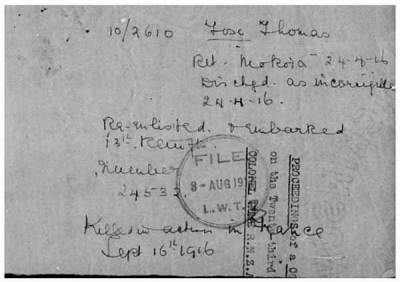 10/2610 Jose Thomas
Ret. "Mokoia" 24-4-16
Dischgd. as incorrigible
24-4-16.
Re-enlisted & embarked
13th Reinfts.
Number
24533
FILE
3-AUG 19
L.W.T.
PROCEEDINGS of a Co
on the Twenty third
COLONEL R.N.Z.A
Killed in action in France
Sept 16th 1916